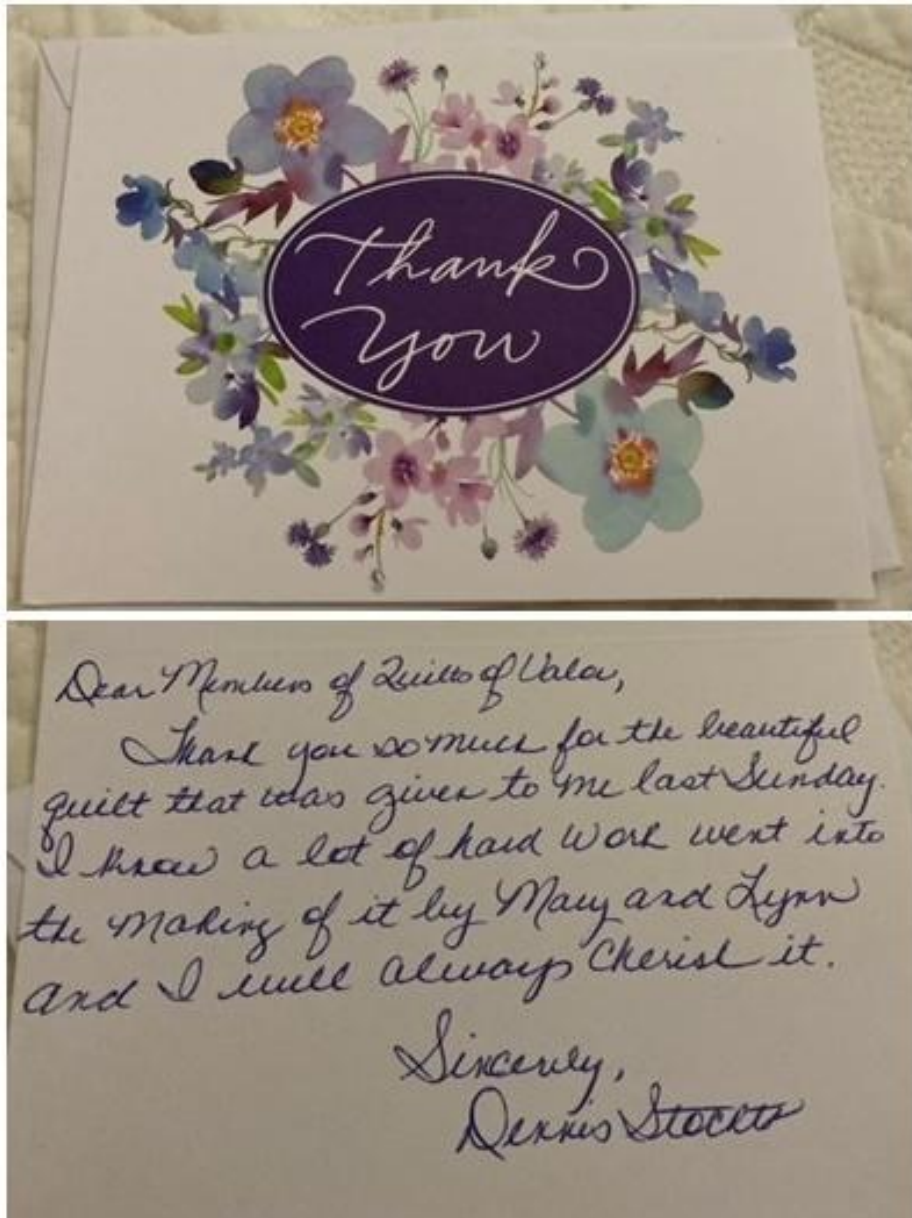 Thank
You
Dear Members of Quilts of Valor,
Thank you so much for the beautiful
quilt that was given to me last Sunday.
I know a lot of hard work went into
the making of it by Mary and Lynn
and I will always cherish it.
Sincerely,
Dennis